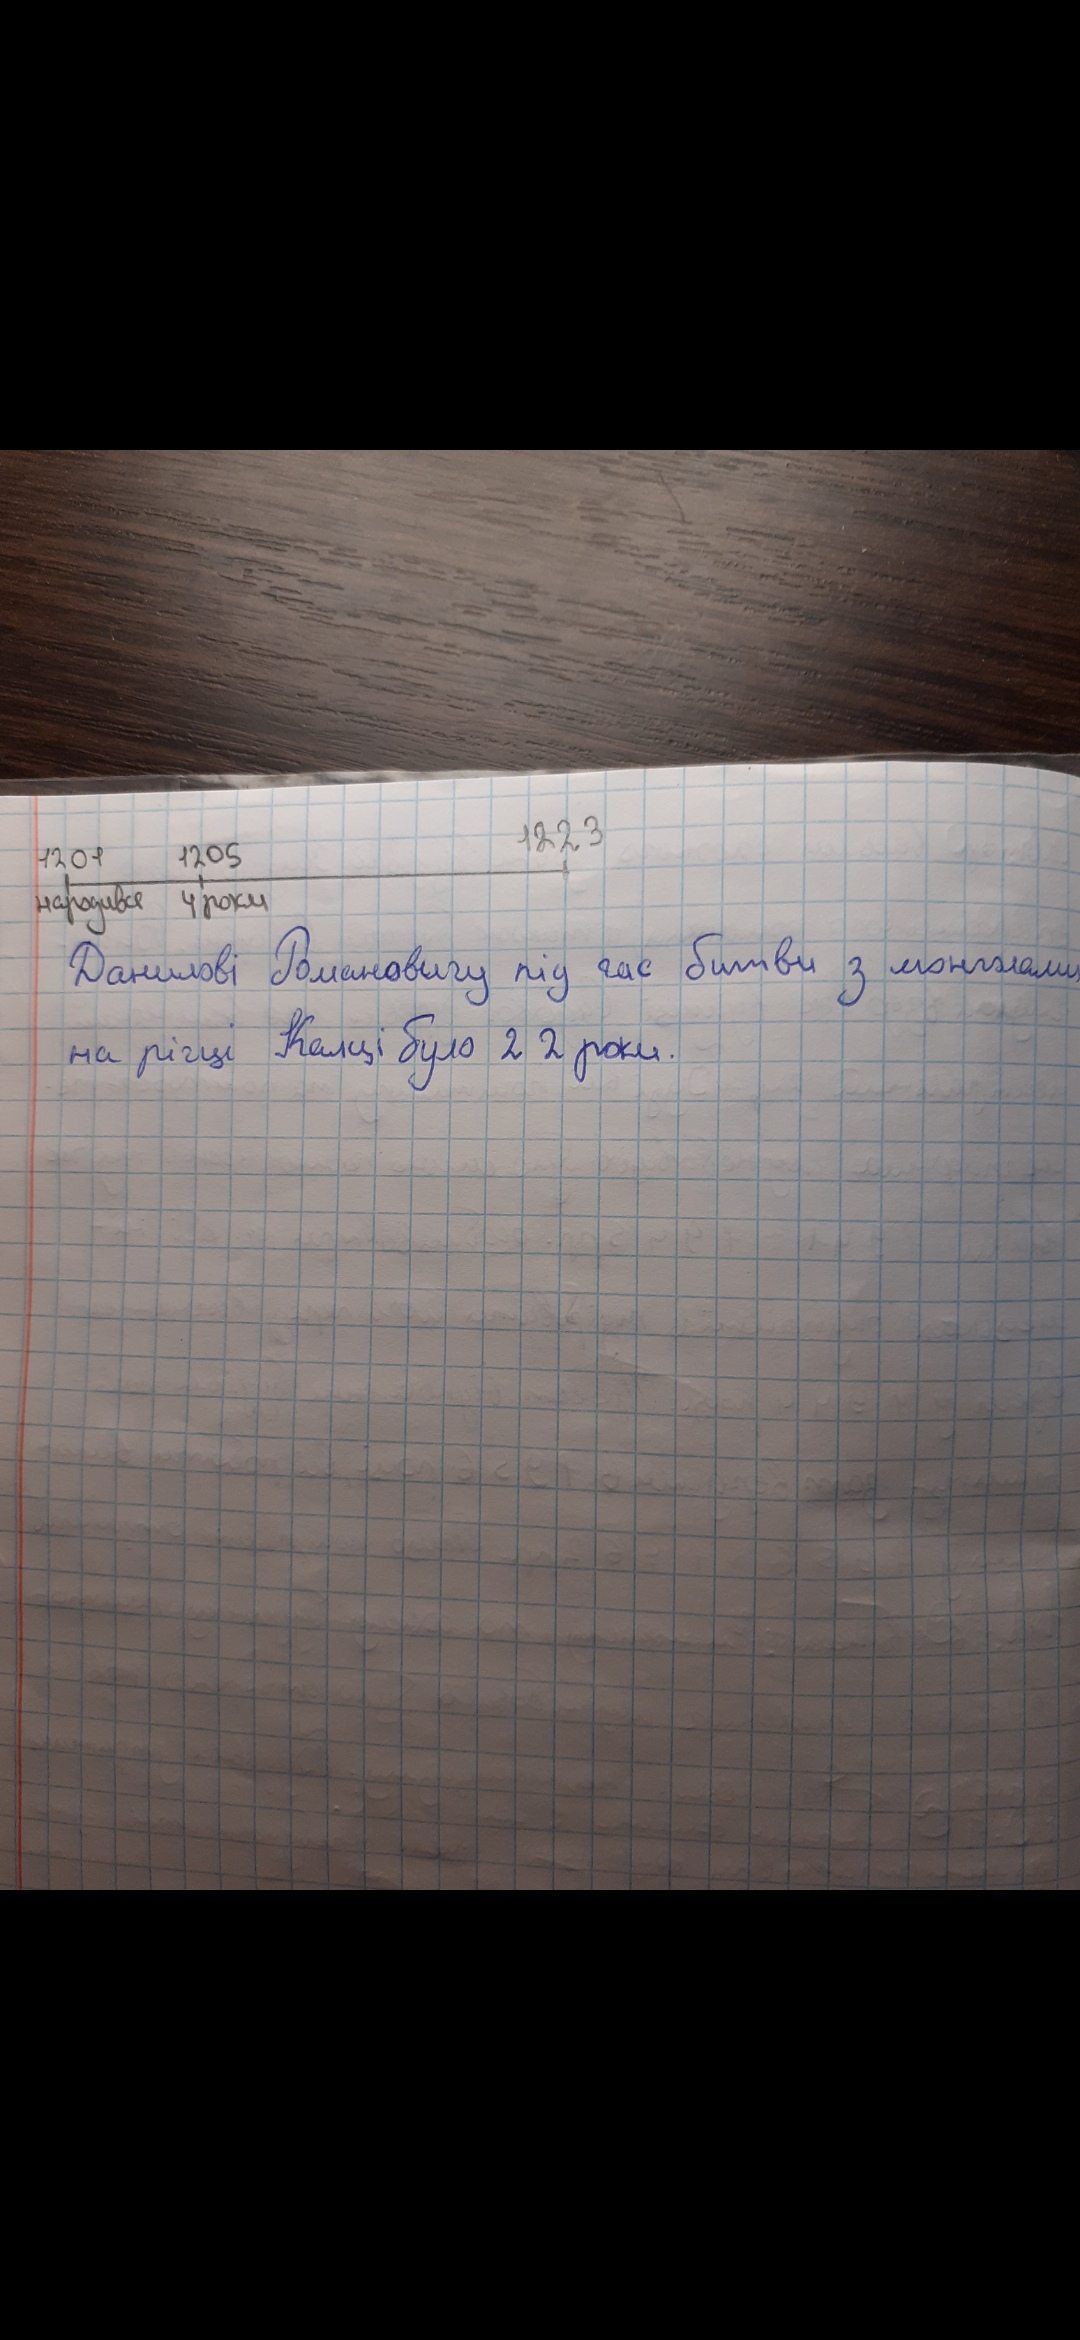 1201 1205 1223
народився 4 роки
Данилові Романовичу під час битви з монголами
на річці Калці було 22 роки.